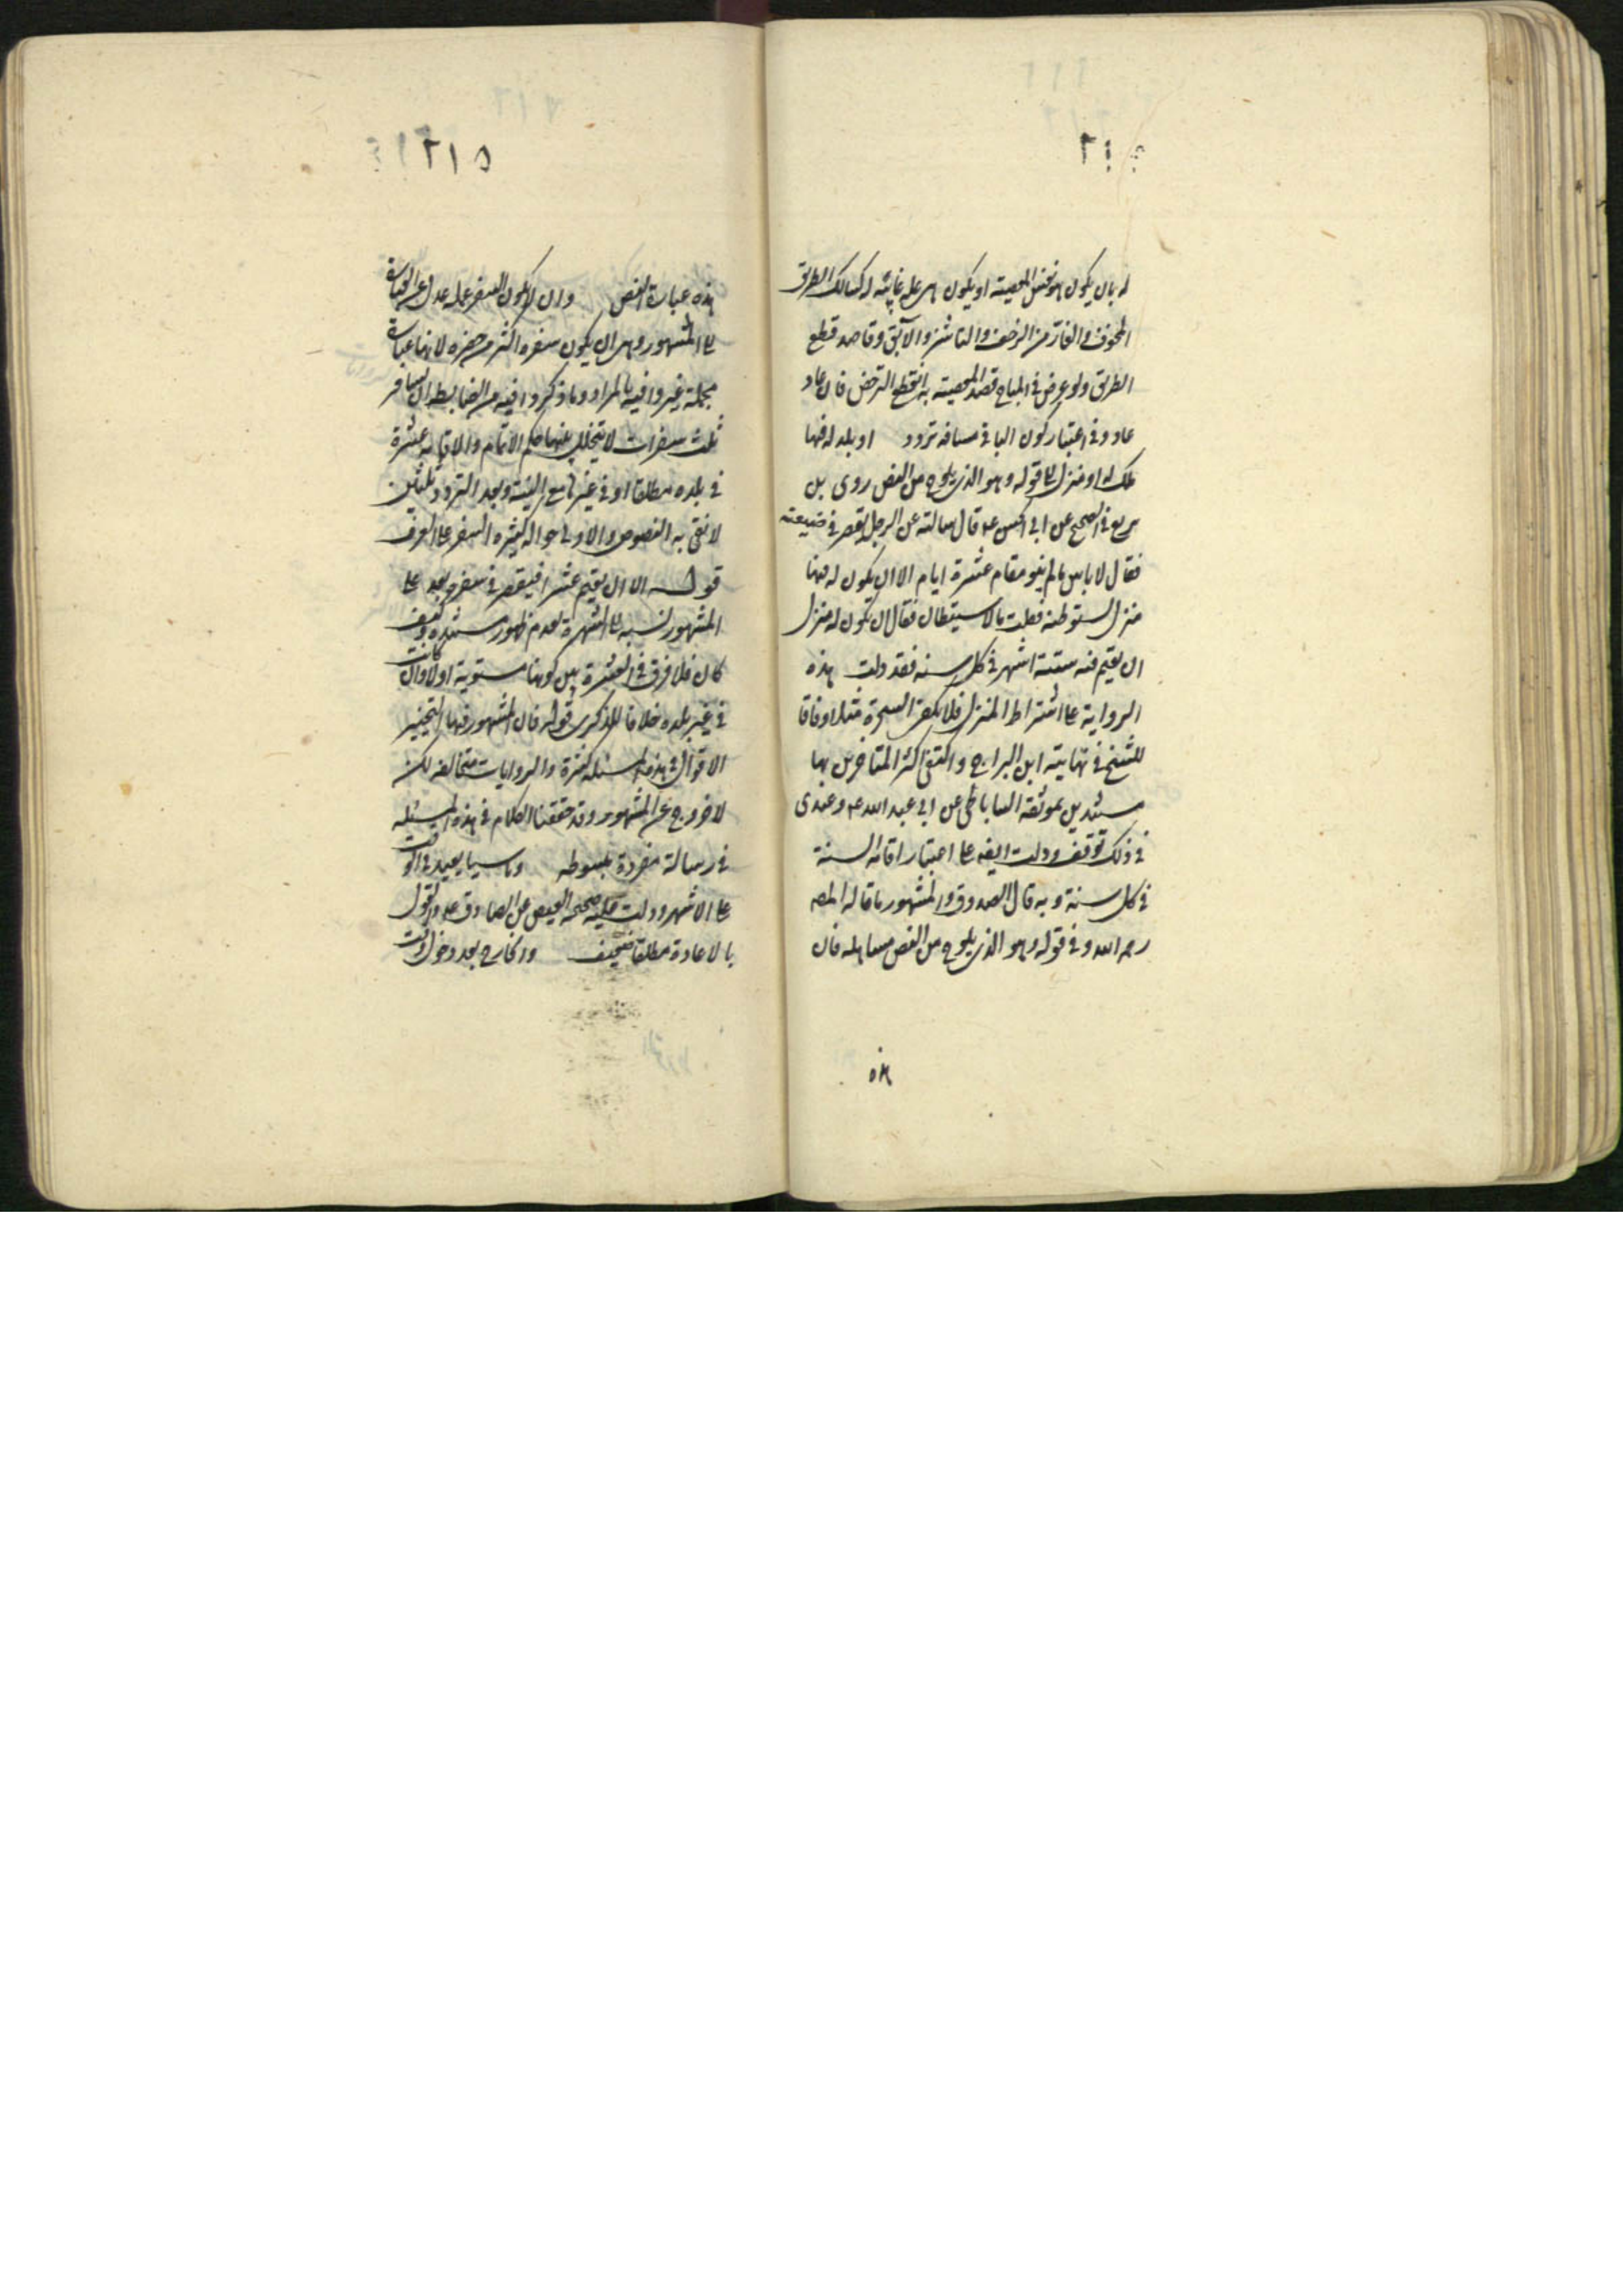 ٢١٤
له بان يكون هو نفس المعصية او يكون هى علة غايته له كسالك الطريق
المخوف والفار من الزحف والناشز والآبق وقاصد قطع
الطريق ولو عرض فى المباح قصد المعصية به انقطع الترخص فان عاد
عاد وفى اعتبار كون الباقى مسافة تردد او بلد له فيها
ملك او منزل الى قوله وهو الذى يلوح من النص روى بن
بزيع فى الصحيح عن ابى الحسن ع قال سالته عن الرجل يقصر فى ضيعته
فقال لا باس ما لم ينو مقام عشرة ايام الا ان يكون له فيها
منزل يستوطنه فقلت ما الاستيطان فقال ان يكون له منزل
ان يقيم فيه ستة اشهر فى كل سنه فقد دلت هذه
الرواية على اشتراط المنزل فلا يكفى الشجرة مثلا وفاقا
للشيخ فى نهايته ابن البراج واكتفى اكثر المتاخرين بها
مستندين بموثقة الساباطى عن ابى عبد الله ع وعندى
فى ذلك توقف ودلت ايضه على اعتبار اقامة الستة
فى كل سنة وبه قال الصدوق والمشهور ما قاله المصه
رحمه الله وفى قوله وهو الذى يلوح من النص مساهله فان
هذه
٢١٥
هذه عبارة النص وان لا يكون السفر عمله عدل عن العبارة
المشهور وهى ان يكون سفره اكثر من حضره لانها عبارة
مجملة غير وافية بالمراد وما ذكروا فيه من الضابط ان يسافر
ثلث سفرات لا يتخلل بينها حكم الاتمام والاقامة عشرة
فى بلده مطلقا او فى غيرها مع النية وبعد التردد ثلثين
لا تفى به النصوص والاولى حوالة كثيره السفر على العرف
قوله الا ان يقيم عشرا فيقصر فى سفره بعد على
المشهور نسبه الى الشهرة لعدم ظهور مستنده وكيف
كان فلا فرق فى العشرة بين كونها مستوية اولا وان كانت
فى غير بلده خلافا للذكرى قوله فان المشهور فيها التخيير
الاقوال فى هذه المسئله كثيرة والروايات متخالفه لكن
لا خروج عن المشهور وقد حققنا الكلام فى هذه المسئله
فى رسالة مفردة مبسوطه وناسيا يعيد فى الوقت
على الاشهر ودلت عليه صحيحة العيص عن الصادق ع والقول
بالاعادة مطلقا ضعيف والخارج بعد دخول الوقت